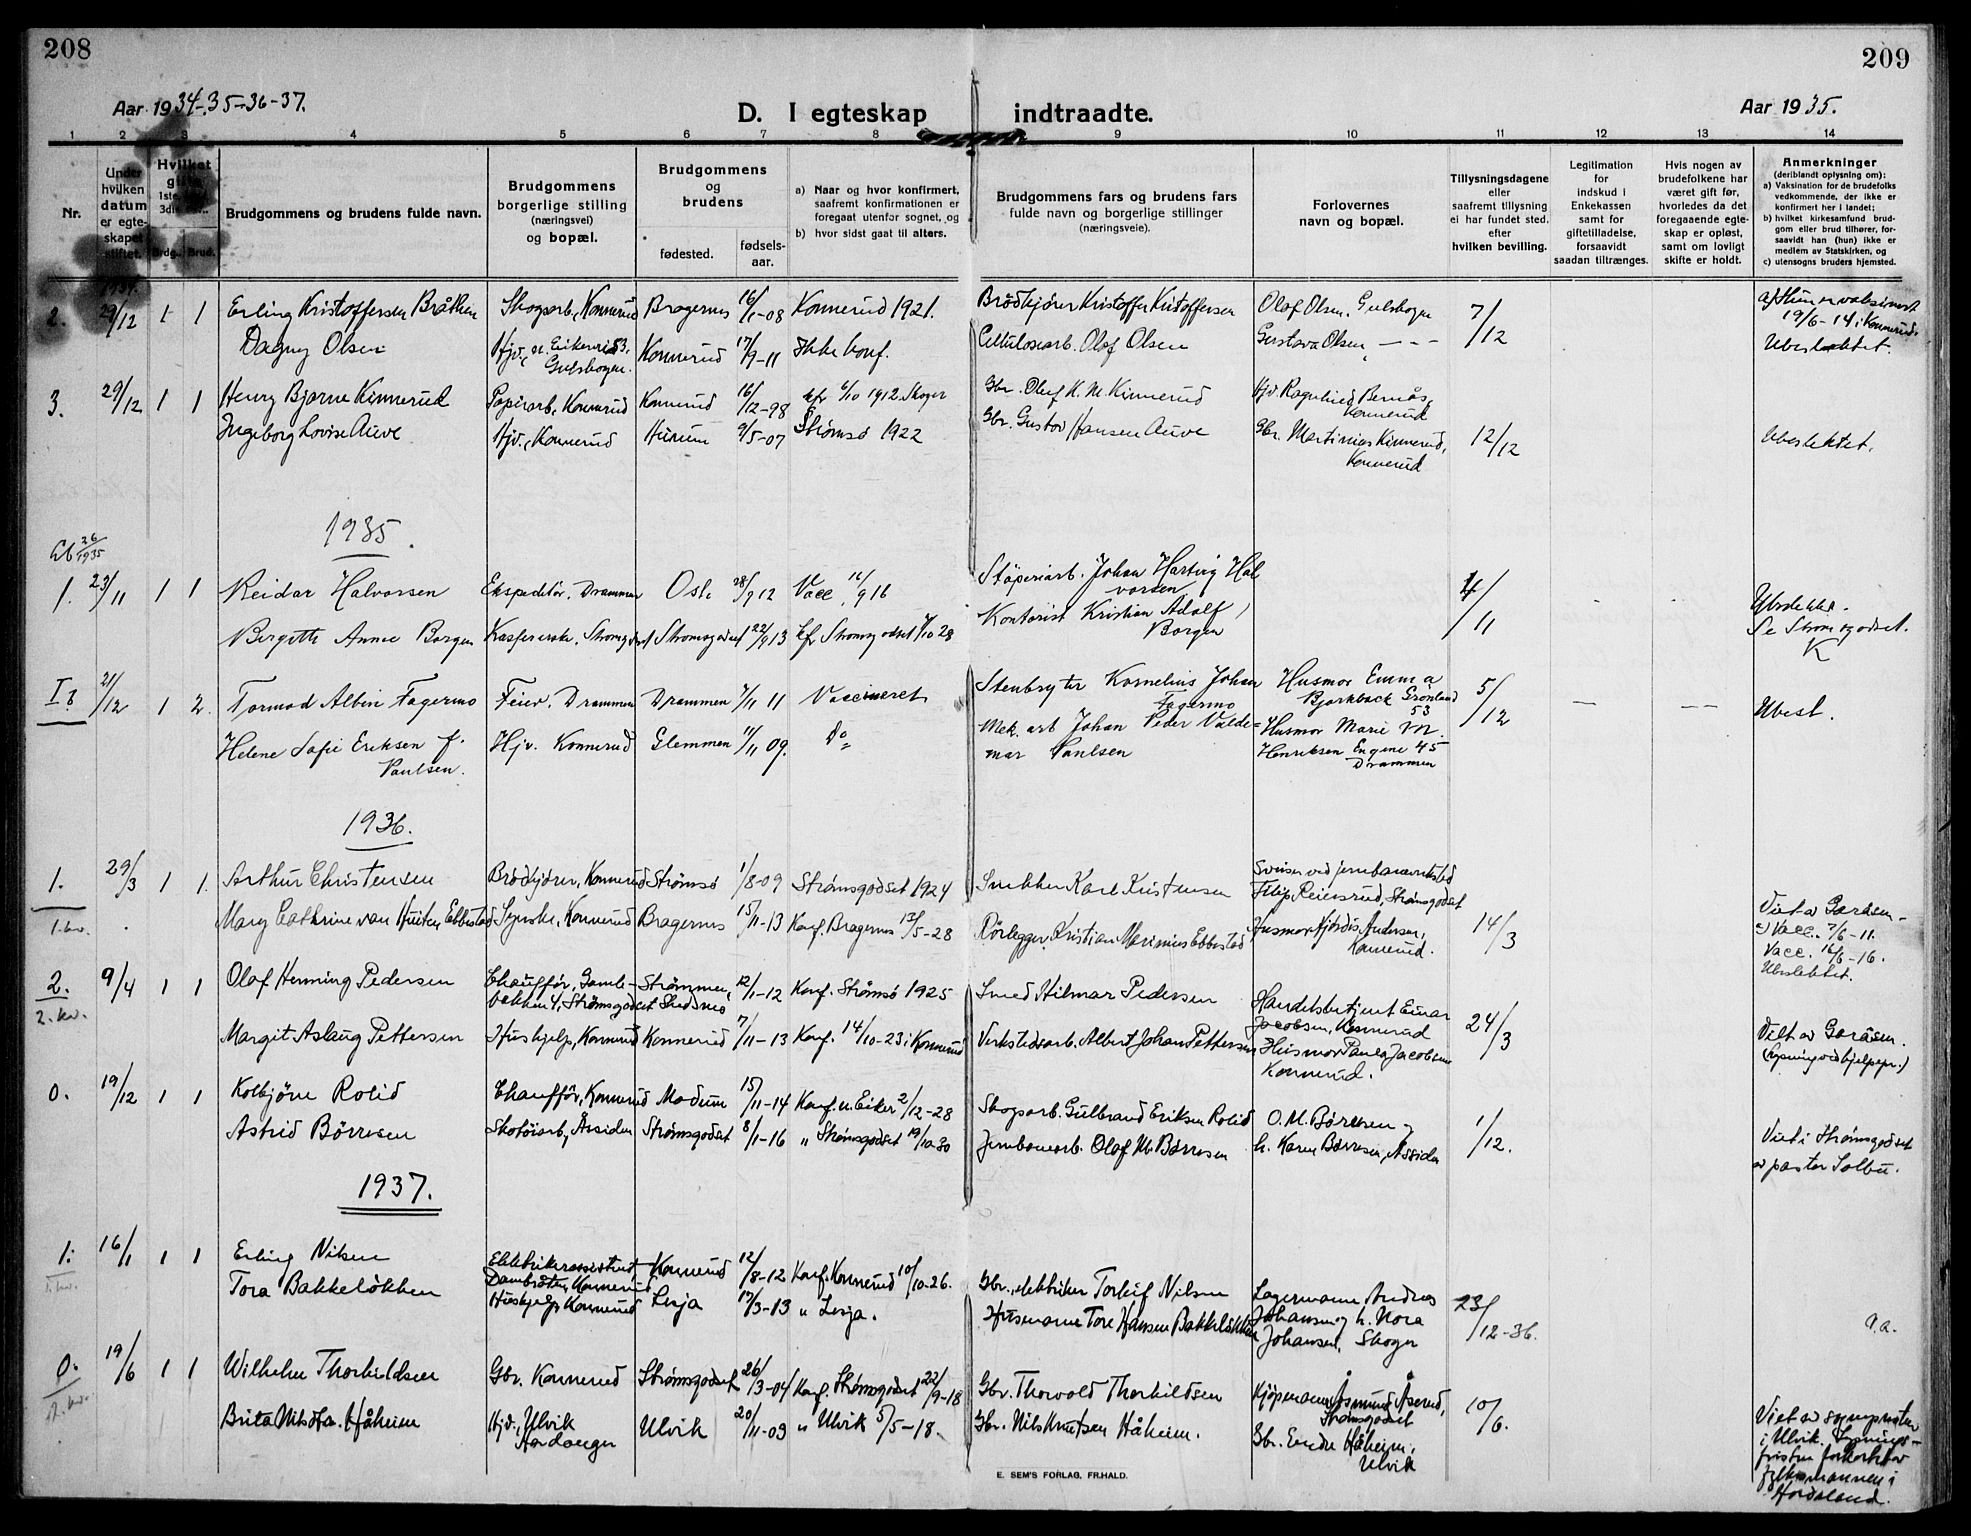 208
209
Aar 1934-35-36-37.
D. I egteskap indtraadte.
Aar 1935.
1 2 3 4 5 6 7 8 9 10 11 12 13 14
Nr.
Under hvilken datum er egteskapet stiftet.
Brudg. Brud.
Brudgommens og brudens fulde navn.
Brudgommens borgerlige stilling (næringsvei) og bopæl.
Brudgommens og brudens
fødested.
fødselsaar.
a) Naar og hvor konfirmert, saafremt konfirmationen er foregaat utenfor sognet, og
b) hvor sidst gaat til alters.
Brudgommens fars og brudens fars fulde navn og borgerlige stillinger (næringsveie).
Forlovernes navn og bopæl.
Tillysningsdagene eller saafremt tillysning ei har fundet sted. efter hvilken bevilling.
Legitimation for indskud i Enkekassen samt for giftetilladelse, forsaavidt saadan tiltrænges.
Hvis nogen av brudefolkene har været gift før, hvorledes da det foregaaende egteskap er opløst, samt om lovligt skifte er holdt.
Anmerkninger (deriblandt oplysning om):
a) Vaksination for de brudefolks vedkommende, der ikke er konfirmert her i landet;
b) hvilket kirkesamfund brudgom eller brud tilhører, forsaavidt han (hun) ikke er medlem av Statskirken, og
c) utensogns bruders hjemsted.
2. 29/12 1 1 Erling Kristoffersen Bråthen Skogsarb., Konnerud Bragernes 16/1-08 Konnerud 1921. Brödkjører Kristoffer Kristoffersen Olaf Olsen, Gulskogen 7/12
Dagny Olsen Konnerud 17/9-11 Ikke konf. Cellulosearb. Olaf Olsen Gustava Olsen
19/6-14 i Konnerud.
Ubeslektet.
3. 29/12 1 1 Henry Bjarne Kinnerud Papirarb., Konnerud Konnerud 16/12-98 kfr 6/10 1912. Skoger Gbr. Oluf K. M. Kinnerud Hjv. Ragnhild Bernås, Konnerud
Ingeborg Lovise Auve Hjv., Konnerud Hurum 9/5-07 Strømsö 1922 Gbr. Gustav Hansen Auve Gbr. Martinius Kinnerud, Konnerud 12/12 Ubeslektet.
1935.
26/1935
1. 23/11 1 1 Reidar Halvorsen Ekspeditør. Drammen Oslo 28/9 12 Vacc. 16/9 16 Støperiarb. Johan Hartvig Halvorsen 4/11
Birgitte Annie Borgen Kassererske. Strømsgodset Strømsgodset 22/9 13 kfr Strømsgodset 7/10 28 Kontorist Kristian Adolf Borgen
Se Strømsgodset.
K
21/12 1 2. Tormod Albin Fagermo Feier. Drammen Drammen 7/11 11 Vaccineret Stenbryter Kornelius Johan Fagermo Husmor Emma Bjørkbäck Grønland 53 5/12 Ubesl.
Helene Sofie Eriksen f. Paulsen. Hjv. Konnerud Glemmen 11/11 09. Do Mek. arb Johan Peder Valdemar Paulsen Husmor Marie M. Henriksen Engene 45 Drammen
1936.
1. 29/3 1 1. Arthur Christensen Brödkjører, Konnerud Strömsö 1/8-09 Strømsgodset 1924 Snekker Karl Kristensen Sveiser ved jernbaneverksted Filip Reiersrud, Strømsgodset
1. kv. Mary Cathrine van Huiten Ebbestad Syerske, Konnerud Bragernes 15/11-13 Konf. Bragernes 13/5-28 Rørlegger Kristian Marinius Ebbestad Husmor Hjördis Andersen, Konnerud. 14/3
Vacc. 7/6-11.
Vacc. 16/6-16.
Ubeslektet.
2. 9/4 1 1 Olaf Henning Pedersen Chauffør, Gamlebakken 4, Strømsgodset Strømmen, 12/1-12 Konf. Strømsö 1925 Smed Hilmar Pedersen Handelsbetjent Einar Jacobsen, Konnerud 24/3
2. kv. Margit Aslaug Pettersen Hushjelp, Konnerud Konnerud 7/11-13 Konf. 14/10-23 i Konnerud Verkstedsarb. Albert Johan Pettersen Husmor Paula Jacobsen Konnerud.
0. 19/12 1 1 Kolbjörn Rolid Chauffør, Konnerud Modum 15/11-14 Konf. n. Eiker 2/12-28 Skogsarb. Gulbrand Eriksen Rolid O. M. Børresen og 1/12.
Astrid Börresen Skotöiarb., Åssiden Strømsgodset 8/1-16 " Strømsgodset 19/10-30 Jernbanearb. Olaf M. Børresen h. Karen Børresen, Åssiden
Viet i Strømsgodset
av pastor Solbu.
1937.
1. 16/1 1 1 Erling Nilsen Elektrikerassistent, Konnerud Konnerud 12/8-12 Konf. Konnerud 10/10-26. Gbr., elektriker Torleif Nilsen Lagermann Andreas Johansen og h. Nora Johansen, Skoger 23/12-36.
Tora Bakkeløkken Hushjelp, Konnerud Lesja 17/3-13 " Lesja. Husmann Tore Hansen Bakkeløkken
0. 19/6 1 1 Wilhelm Thorkildsen Gbr. Konnerud Strømsgodset 26/3-04 Konf. Strømsgodset 22/9-18 Gbr. Thorvald Thorkildsen Kjøpmann Åsmund Åserud, Strømsgodset 10/6.
Brita Nilsdtr. Håheim Hjv., Ulvik Hardanger Ulvik 20/11-09 " Ulvik 5/5-18. Gbr. Nils Knutsen Håheim. Gbr. Endre Håheim, Ulvik
Viet av sogneprsten
i Ulvik. Lysnings-
fristen forkortet av
fylkesmannen i
Hordaland.
E. SEM'S FORLAG, FR.HALD.